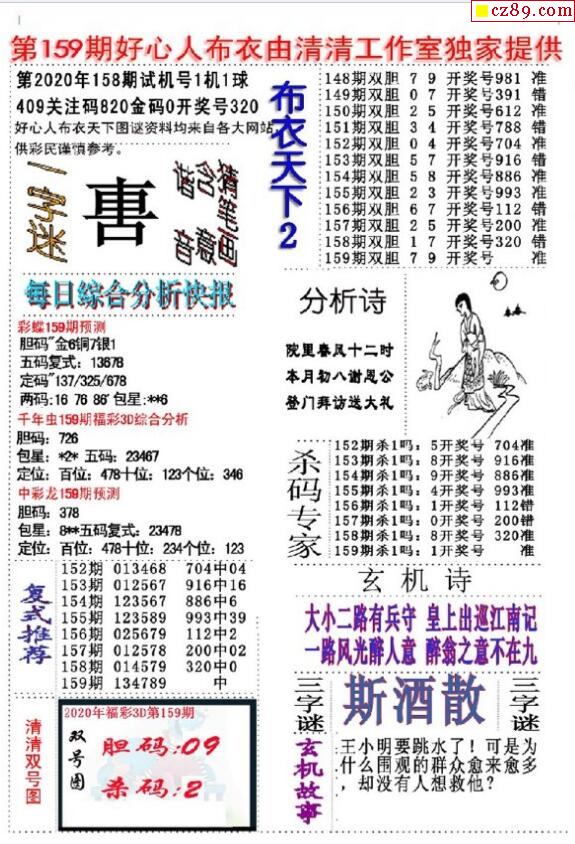 cz89.com
第159期好心人布衣由清清工作室独家提供
第2020年158期试机号1机1球
409关注码820金码0开奖号320
好心人布衣天下图谜资料均来自各大网站,
供彩民谨慎参考。
一字迷
含意
每日综合分析快报
彩蝶159期预测
胆码"金6铜7银1
五码复式：13678
定码"137/325/678
两码:16 76 86' 包星:**6
千年虫159期福彩3D综合分析
胆码：726
包星：*2* 五码：23467
定位：百位：478十位：123个位：346
中彩龙159期预测
胆码：378
包星：8**五码复式：23478
定位：百位：478十位：234个位：123
复式推荐
152期 013468 704中04
153期 012567 916中16
154期 123567 886中6
155期 123589 993中39
156期 025679 112中2
157期 012578 200中02
158期 014579 320中0
159期 134789 中
清清双号图
2020年福彩3D第159期
双号图
胆码:09
杀码:2
布衣天下2
148期双胆 7 9 开奖号981 准
149期双胆 0 7 开奖号391 错
150期双胆 2 5 开奖号612 准
151期双胆 3 4 开奖号788 错
152期双胆 0 4 开奖号704 准
153期双胆 5 7 开奖号916 错
154期双胆 5 8 开奖号886 准
155期双胆 2 3 开奖号993 准
156期双胆 6 7 开奖号112 错
157期双胆 2 5 开奖号200 准
158期双胆 1 7 开奖号320 错
159期双胆 7 9 开奖号 准
分析诗
院里春风十二时
本月初八谢恩公
登门拜访送大礼
杀码专家
152期杀1吗：5开奖号 704准
153期杀1吗：8开奖号 916准
154期杀1吗：9开奖号 886准
155期杀1吗：4开奖号 993准
156期杀1吗：1开奖号 112错
157期杀1吗：0开奖号 200错
158期杀1吗：8开奖号 320准
159期杀1吗：1开奖号 准
玄机诗
大小二路有兵守 皇上出巡江南记
一路风光醉人意 醉翁之意不在九
三字谜
斯酒散
三字谜
玄机故事
王小明要跳水了！可是为
什么围观的群众愈来愈多
，却没有人想救他？